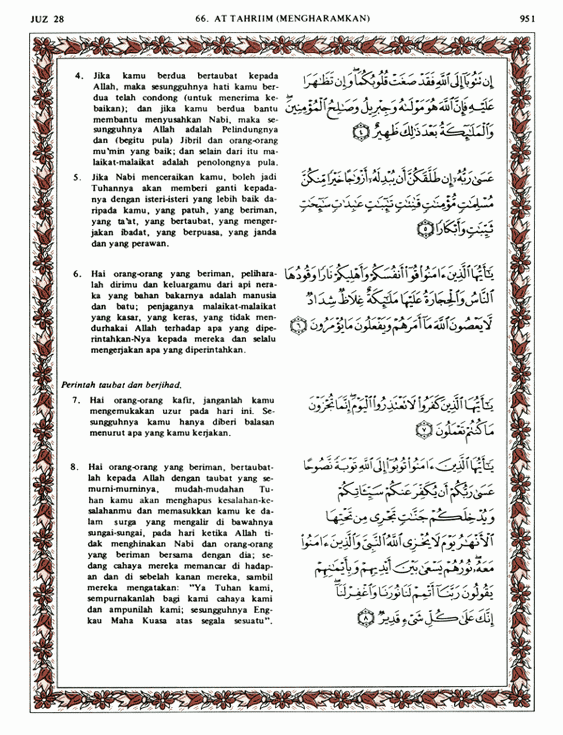 JUZ 28
66. AT TAHRIIM (MENGHARAMKAN)
951
4. Jika kamu berdua bertaubat kepada
Allah, maka sesungguhnya hati kamu ber-
dua telah condong (untuk menerima ke-
baikan); dan jika kamu berdua bantu
membantu menyusahkan Nabi, maka se-
sungguhnya Allah adalah Pelindungnya
dan (begitu pula) Jibril dan orang-orang
mu'min yang baik; dan selain dari itu ma-
laikat-malaikat adalah penolongnya pula.
إِن تَتُوبَآ إِلَى ٱللَّهِ فَقَدْ صَغَتْ قُلُوبُكُمَا ۖ وَإِن تَظَٰهَرَا
عَلَيْهِ فَإِنَّ ٱللَّهَ هُوَ مَوْلَىٰهُ وَجِبْرِيلُ وَصَٰلِحُ ٱلْمُؤْمِنِينَ ۖ
وَٱلْمَلَٰٓئِكَةُ بَعْدَ ذَٰلِكَ ظَهِيرٌ ٤
5. Jika Nabi menceraikan kamu, boleh jadi
Tuhannya akan memberi ganti kepada-
nya dengan isteri-isteri yang lebih baik da-
ripada kamu, yang patuh, yang beriman,
yang ta'at, yang bertaubat, yang menger-
jakan ibadat, yang berpuasa, yang janda
dan yang perawan.
عَسَىٰ رَبُّهُۥٓ إِن طَلَّقَكُنَّ أَن يُبْدِلَهُۥٓ أَزْوَٰجًا خَيْرًا مِّنكُنَّ
مُسْلِمَٰتٍ مُّؤْمِنَٰتٍ قَٰنِتَٰتٍ تَٰٓئِبَٰتٍ عَٰبِدَٰتٍ سَٰٓئِحَٰتٍ
ثَيِّبَٰتٍ وَأَبْكَارًا ٥
6. Hai orang-orang yang beriman, pelihara-
lah dirimu dan keluargamu dari api nera-
ka yang bahan bakarnya adalah manusia
dan batu; penjaganya malaikat-malaikat
yang kasar, yang keras, yang tidak men-
durhakai Allah terhadap apa yang dipe-
rintahkan-Nya kepada mereka dan selalu
mengerjakan apa yang diperintahkan.
يَٰٓأَيُّهَا ٱلَّذِينَ ءَامَنُوا۟ قُوٓا۟ أَنفُسَكُمْ وَأَهْلِيكُمْ نَارًا وَقُودُهَا
ٱلنَّاسُ وَٱلْحِجَارَةُ عَلَيْهَا مَلَٰٓئِكَةٌ غِلَاظٌ شِدَادٌ
لَّا يَعْصُونَ ٱللَّهَ مَآ أَمَرَهُمْ وَيَفْعَلُونَ مَا يُؤْمَرُونَ ٦
Perintah taubat dan berjihad.
7. Hai orang-orang kafir, janganlah kamu
mengemukakan uzur pada hari ini. Se-
sungguhnya kamu hanya diberi balasan
menurut apa yang kamu kerjakan.
يَٰٓأَيُّهَا ٱلَّذِينَ كَفَرُوا۟ لَا تَعْتَذِرُوا۟ ٱلْيَوْمَ ۖ إِنَّمَا تُجْزَوْنَ
مَا كُنتُمْ تَعْمَلُونَ ٧
8. Hai orang-orang yang beriman, bertaubat-
lah kepada Allah dengan taubat yang se-
murni-murninya, mudah-mudahan Tu-
han kamu akan menghapus kesalahan-ke-
salahanmu dan memasukkan kamu ke da-
lam surga yang mengalir di bawahnya
sungai-sungai, pada hari ketika Allah ti-
dak menghinakan Nabi dan orang-orang
yang beriman bersama dengan dia; se-
dang cahaya mereka memancar di hadap-
an dan di sebelah kanan mereka, sambil
mereka mengatakan: "Ya Tuhan kami,
sempurnakanlah bagi kami cahaya kami
dan ampunilah kami; sesungguhnya Eng-
kau Maha Kuasa atas segala sesuatu".
يَٰٓأَيُّهَا ٱلَّذِينَ ءَامَنُوا۟ تُوبُوٓا۟ إِلَى ٱللَّهِ تَوْبَةً نَّصُوحًا
عَسَىٰ رَبُّكُمْ أَن يُكَفِّرَ عَنكُمْ سَيِّـَٔاتِكُمْ
وَيُدْخِلَكُمْ جَنَّٰتٍ تَجْرِى مِن تَحْتِهَا
ٱلْأَنْهَٰرُ يَوْمَ لَا يُخْزِى ٱللَّهُ ٱلنَّبِىَّ وَٱلَّذِينَ ءَامَنُوا۟
مَعَهُۥ ۖ نُورُهُمْ يَسْعَىٰ بَيْنَ أَيْدِيهِمْ وَبِأَيْمَٰنِهِمْ
يَقُولُونَ رَبَّنَآ أَتْمِمْ لَنَا نُورَنَا وَٱغْفِرْ لَنَآ ۖ
إِنَّكَ عَلَىٰ كُلِّ شَىْءٍ قَدِيرٌ ٨